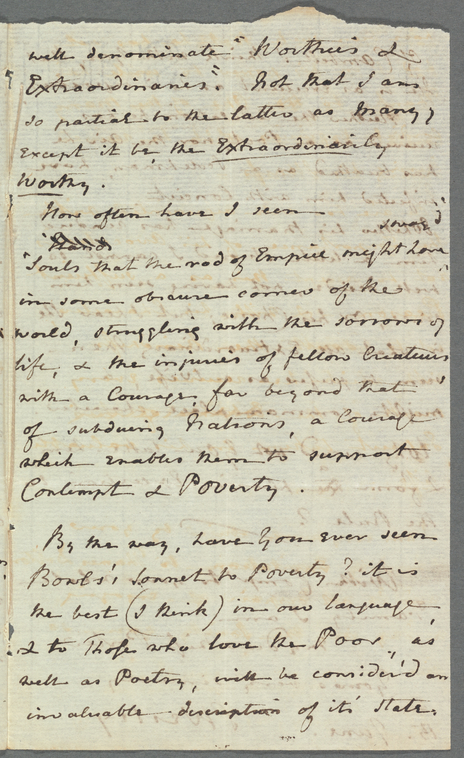 well denominate "Worthies &
Extraordinaries". Not that I am
so partial to the latter as many,
except it be the Extraordinarily
Worthy.
How often have I seen
"Hands
"Souls that the rod of Empire might have sway'd"
in some obscure corner of the
world, struggling with the sorrows of
life, & the injuries of fellow Creatures
with a Courage, far beyond that
of subduing Nations, a Courage
which enables them to support
Contempt & Poverty.
By the way, have you ever seen
Bowls's Sonnet to Poverty? it is
the best (I think) in our language
& to Those who love the Poor, as
well as Poetry, will be consider'd an
invaluable description of it's state.